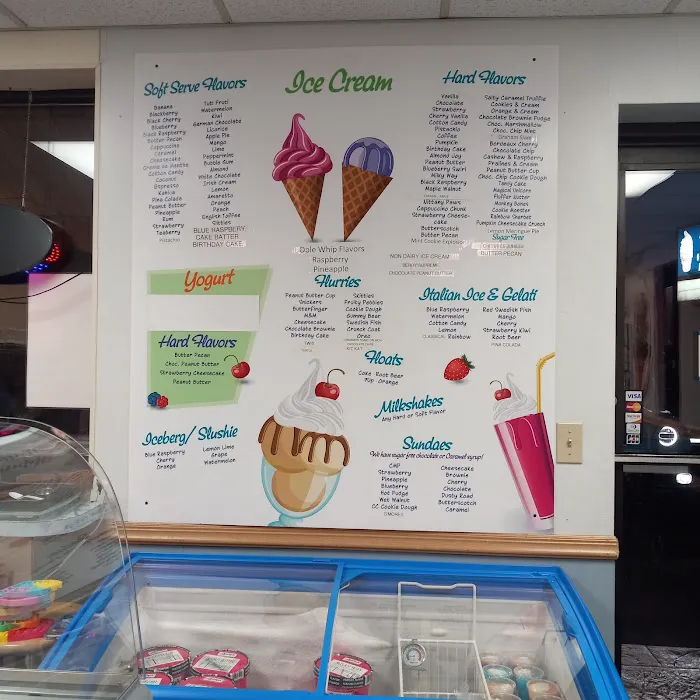 Ice Cream
Soft Serve Flavors
Banana
Blackberry
Black Cherry
Blueberry
Black Raspberry
Butter Pecan
Cappuccino
Caramel
Cheesecake
Creme de Menthe
Cotton Candy
Coconut
Espresso
Kahlua
Pina Colada
Peanut Butter
Pineapple
Rum
Strawberry
Teaberry
Pistachio
Tuti Fruti
Watermelon
Kiwi
German Chocolate
Licorice
Apple Pie
Mango
Lime
Peppermint
Bubble Gum
Almond
White Chocolate
Irish Cream
Lemon
Amaretto
Orange
Peach
English Toffee
Skittles
BLUE RASPBERRY
CAKE BATTER
BIRTHDAY CAKE
Hard Flavors
Vanilla
Chocolate
Strawberry
Cherry Vanilla
Cotton Candy
Pistachio
Coffee
Pumpkin
Birthday Cake
Almond Joy
Peanut Butter
Blueberry Swirl
Milky Way
Black Raspberry
Maple Walnut
Nittany Paws
Cappuccino Chunk
Strawberry Cheese-
cake
Butterscotch
Butter Pecan
Mint Cookie Explosion
Salty Caramel Truffle
Cookies & Cream
Orange & Cream
Chocolate Brownie Fudge
Choc. Marshmallow
Choc. Chip Mint
Graham Slam
Bordeaux Cherry
Chocolate Chip
Cashew & Raspberry
Pralines & Cream
Peanut Butter Cup
Choc. Chip Cookie Dough
Tandy Cake
Magical Unicorn
Fluffer Nutter
Monkey Bonus
Cookie Monster
Rainbow Sherbet
Pumpkin Cheesecake Crunch
Lemon Meringue Pie
Sugar Free
BUTTER PECAN
Dole Whip Flavors
Raspberry
Pineapple
NON DAIRY ICE CREAM
BERRY SUPREME
CHOCOLATE PEANUT BUTTER
Yogurt
Hard Flavors
Butter Pecan
Choc. Peanut Butter
Strawberry Cheesecake
Peanut Butter
Flurries
Peanut Butter Cup
Snickers
Butterfinger
M&M
Cheesecake
Chocolate Brownie
Birthday Cake
Twix
Skittles
Fruity Pebbles
Cookie Dough
Gummy Bear
Swedish Fish
Crunch Coat
Oreo
KIT KAT
Italian Ice & Gelati
Blue Raspberry
Watermelon
Cotton Candy
Lemon
CLASSICAL Rainbow
Red Swedish Fish
Mango
Cherry
Strawberry Kiwi
Root Beer
PINA COLADA
Floats
Coke Root Beer
7Up Orange
Milkshakes
Any Hard or Soft Flavor
Iceberg/ Slushie
Blue Raspberry
Cherry
Orange
Lemon Lime
Grape
Watermelon
Sundaes
We have sugar free chocolate or Caramel syrup!
CMP
Strawberry
Pineapple
Blueberry
Hot Fudge
Wet Walnut
CC Cookie Dough
S'MORES
Cheesecake
Brownie
Cherry
Chocolate
Dusty Road
Butterscotch
Caramel
VISA